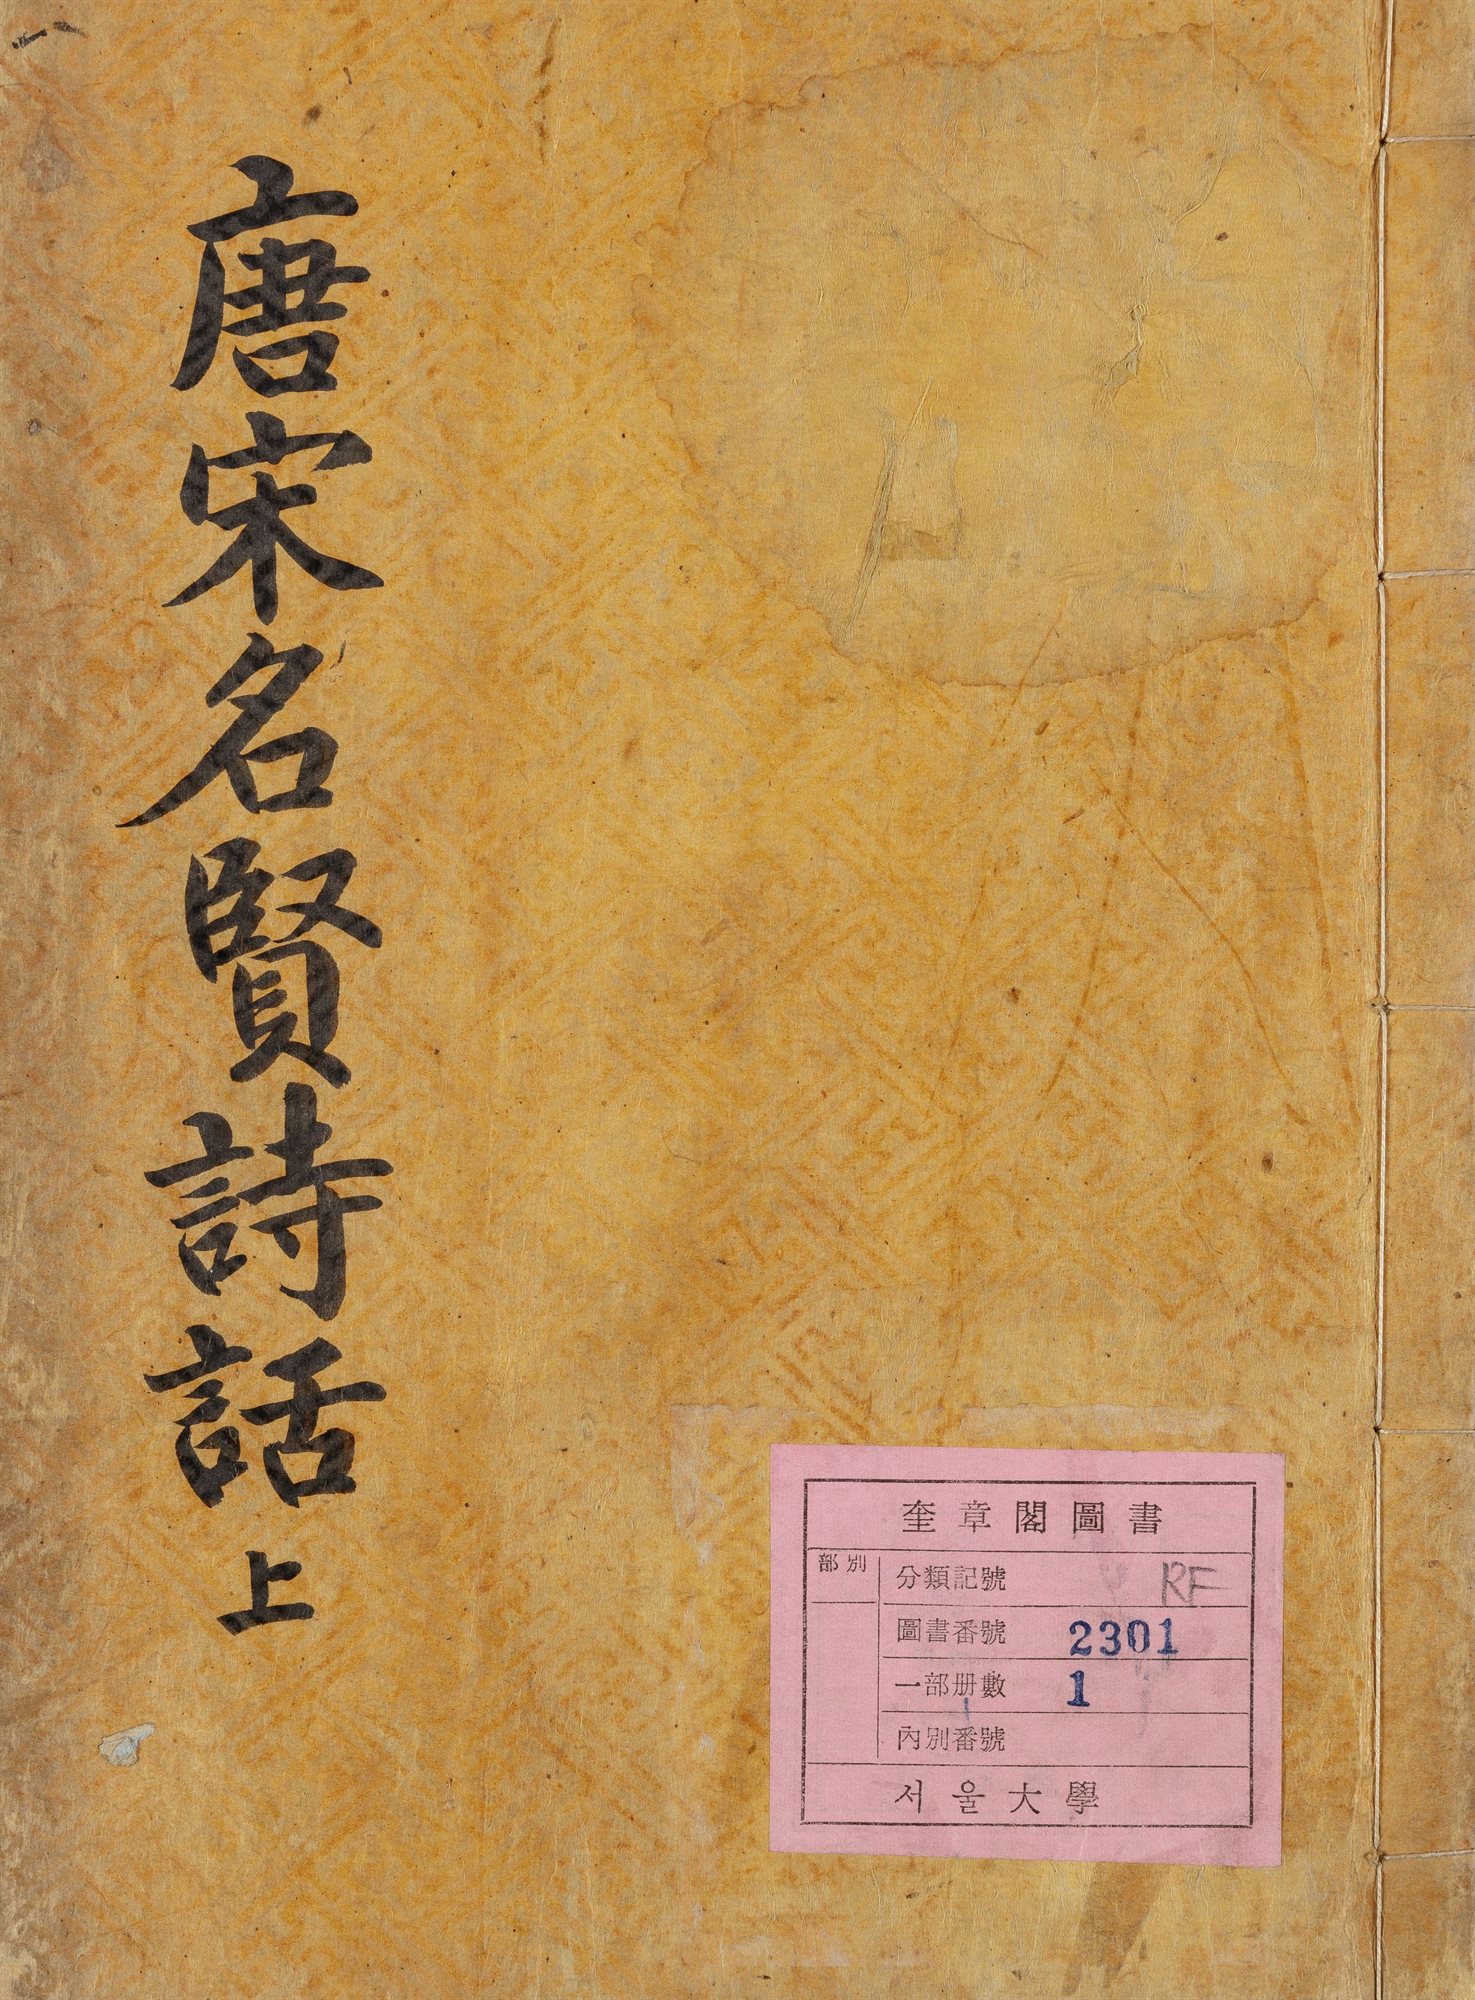 唐宋名賢詩話 上
奎章閣圖書
部別
分類記號 RF
圖書番號 2301
一部册數 1
內別番號
서울大學